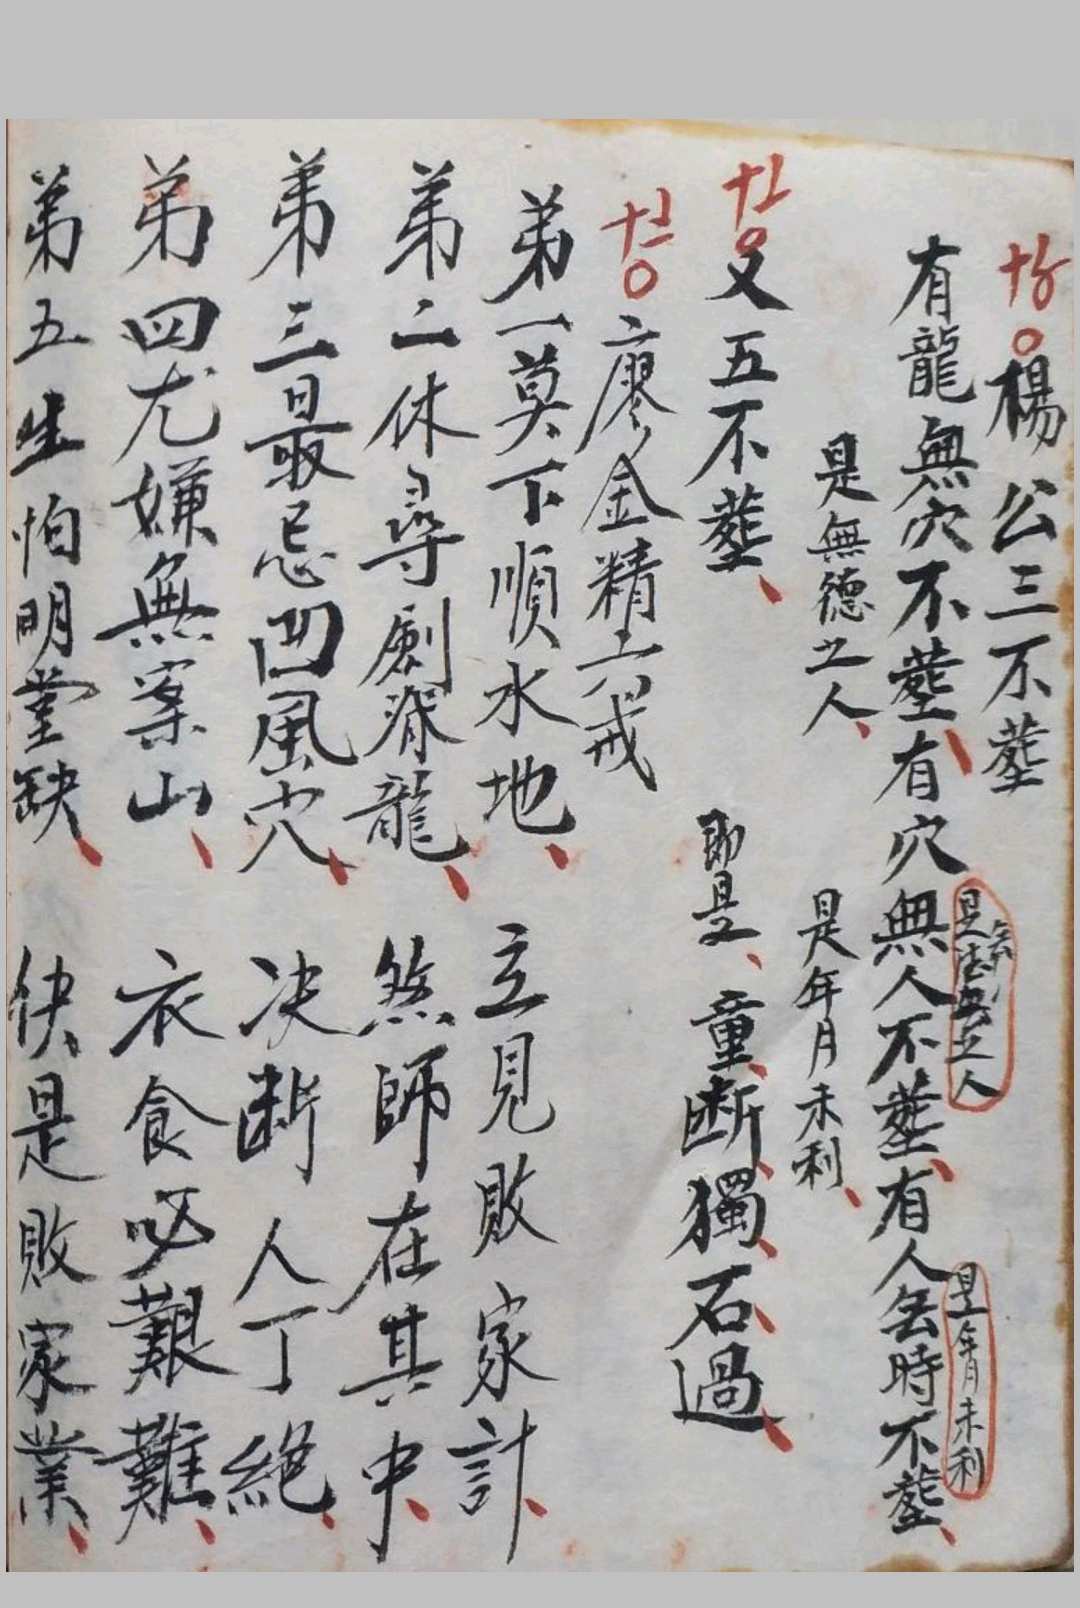 楊公三不塟
有龍無穴不塟、有穴無人不塟、有人無時不塟、
是年月未利
是無德之人、
是年月未利、
又五不塟、
即是、童、断、獨、石、過、
廖金精六戒
弟一莫下順水地、立見敗家計、
弟二休尋劍脊龍、煞師在其中、
弟三最忌凹風穴、决断人丁絕、
弟四尤嫌無案山、衣食必艱難、
弟五生怕明堂缺、快是敗家業、